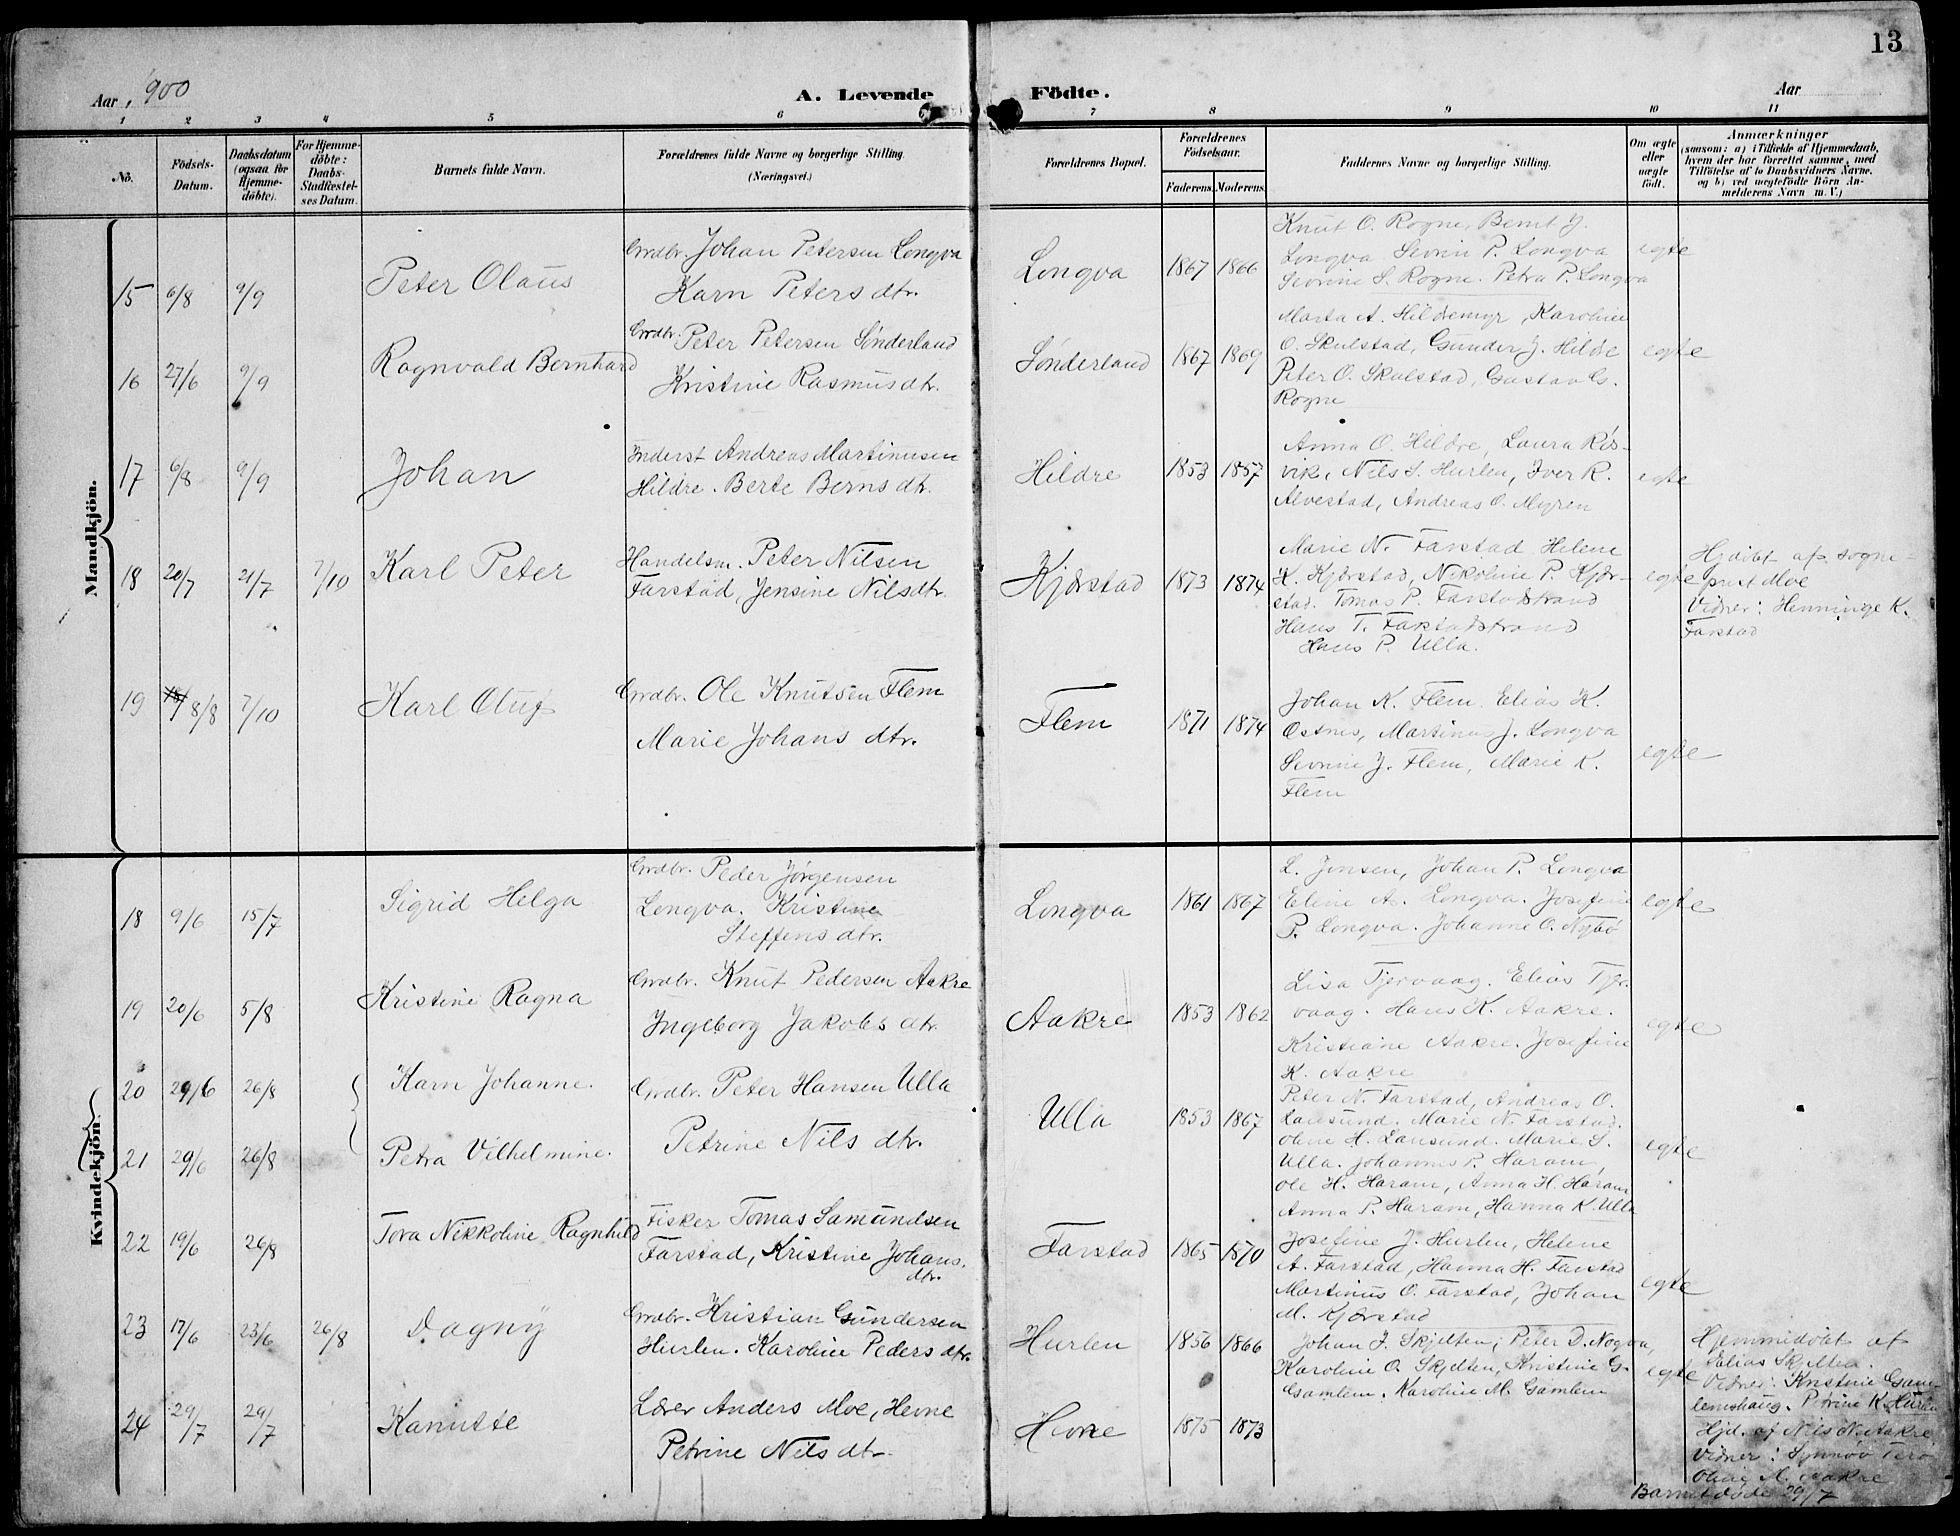 13
Aar 1900
A. Levende Födte.
Aar
1 2 3 4 5 6 7 8 9 10 11
No.
Födsels-Datum.
Daabsdatum (ogsaa for Hjemme-döbte).
For Hjemme-döbte: Daabs-Stadfæstel-ses Datum.
Barnets fulde Navn.
Forældrenes fulde Navne og borgerlige Stilling. (Næringsvei.)
Forældrenes Bopæl.
Forældrenes Födselsaar.
Faderens. Moderens.
Faddernes Navne og borgerlige Stilling.
Om ægte eller uægte födt.
Anmærkninger
(saasom: a) i Tilfælde af Hjemmedaab,
hvem der har forrettet samme, med
Tilföielse af to Daabsvidners Navne.
og b) ved uægtefödte Börn An-
melderens Navn m. V.)
Mandkjön.
15 6/8 9/9 Peter Olaus
Grdbr. Johan Petersen Longva
Karn Petersdtr.
Longva 1867 1866
Knut O. Rogne, Bernt J.
Longva Sivrin P. Longva
Sivrine S. Rogne. Petra P. Longva
egte
16 27/6 9/9 Ragnvald Bernhard
Grdbr. Peter Petersen Sønderland
Kristine Rasmusdtr.
Sønderland 1867 1869
Marta A. Hildremyr, Karoline
O. Skulstad, Gunder J. Hilde
Peter O. Skulstad, Gustav G.
Rogne
egte
17 6/8 9/9 Johan
Inderst Andreas Martinusen
Hildre. Berte Bernsdtr.
Hildre 1853 1857
Anna O. Hildre, Laura Ris-
vik, Nils S. Hurlen, Iver R.
Alvestad, Andreas O. Myren
egte
18 20/7 21/7 7/10 Karl Peter
Handelsm. Peter Nilsen
Farstad, Jensine Nilsdtr.
Kjørstad 1873 1874
Marie N. Farstad Helene
K. Kjørstad, Nikoline P. Kjør-
stad. Tomas P. Farstadstrand
Hans T. Farstadstrand
Hans P. Ulla.
egte
Hjdöbt af sogne-
prest Moe
Vidner: Henninge K.
Farstad
19 8/8 7/10 Karl Oluf
Grdbr. Ole Knutsen Flem
Marie Johansdtr.
Flem 1871 1874
Johan K. Flem. Elias K.
Østnes, Martinus J. Longva
Sivrine J. Flem, Marie K.
Flem
egte
Kvindekjön.
18 9/6 15/7 Sigrid Helga
Grdbr. Peder Jørgensen
Longva. Kristine
Steffensdtr.
Longva 1861 1867
L. Jensen, Johan P. Longva
Eline A. Longva. Josefine
P. Longva. Johanne O. Nybø
egte
19 20/6 5/8 Kristine Ragna
Grdbr. Knut Pedersen Aakre
Ingeborg Jakobsdtr.
Aakre 1853 1862
Lisa Tjervaag. Elias Tjer-
vaag. Hans K. Aakre.
Kristiane Aakre. Josefine
K. Aakre
egte
20 29/6 26/8 Karn Johanne.
21 29/6 26/8 Petra Vilhelmine.
Grdbr. Peter Hansen Ulla
Petrine Nilsdtr.
Ulla 1853 1867
Peter N. Farstad, Andreas O.
Lausund. Marie N. Farstad.
Oline H. Lausund. Marie S.
Ulla. Johannes P. Haram,
Ole H. Haram, Anna H. Haram
Anna P. Haram, Hanna K. Ulla
egte
22 19/6 26/8 Tora Nikkoline Ragnhild
Fisker Tomas Samundsen
Farstad, Kristine Johans.
dtr.
Farstad 1865 1870
Josefine J. Hurlen, Helene
A. Farstad, Hanna H. Farstad
Martinus O. Farstad, Johan
M. Kjørstad
egte
23 17/6 23/6 26/8 Dagny
Grdbr. Kristian Gundersen
Hurlen. Karoline Pedersdtr.
Hurlen 1856 1866
Johan J. Skjelten, Peter D. Nogva,
Karoline O. Skjelten, Kristine G.
Gamlem. Karoline M. Gamlem
egte
Hjemmedöbt af
Elias Skjelten.
Vidner: Kristine Gam-
lemshaug. Petrine K. Hurlen
24 29/7 29/7 Kanutte
Lærer Anders Moe, Hevne
Petrine Nilsdtr.
Hevne 1875 1873
Hjd. af Nils N. Aakre
Vidner: Synnøv
Oline A. Aakre
Barnet døde 29/7